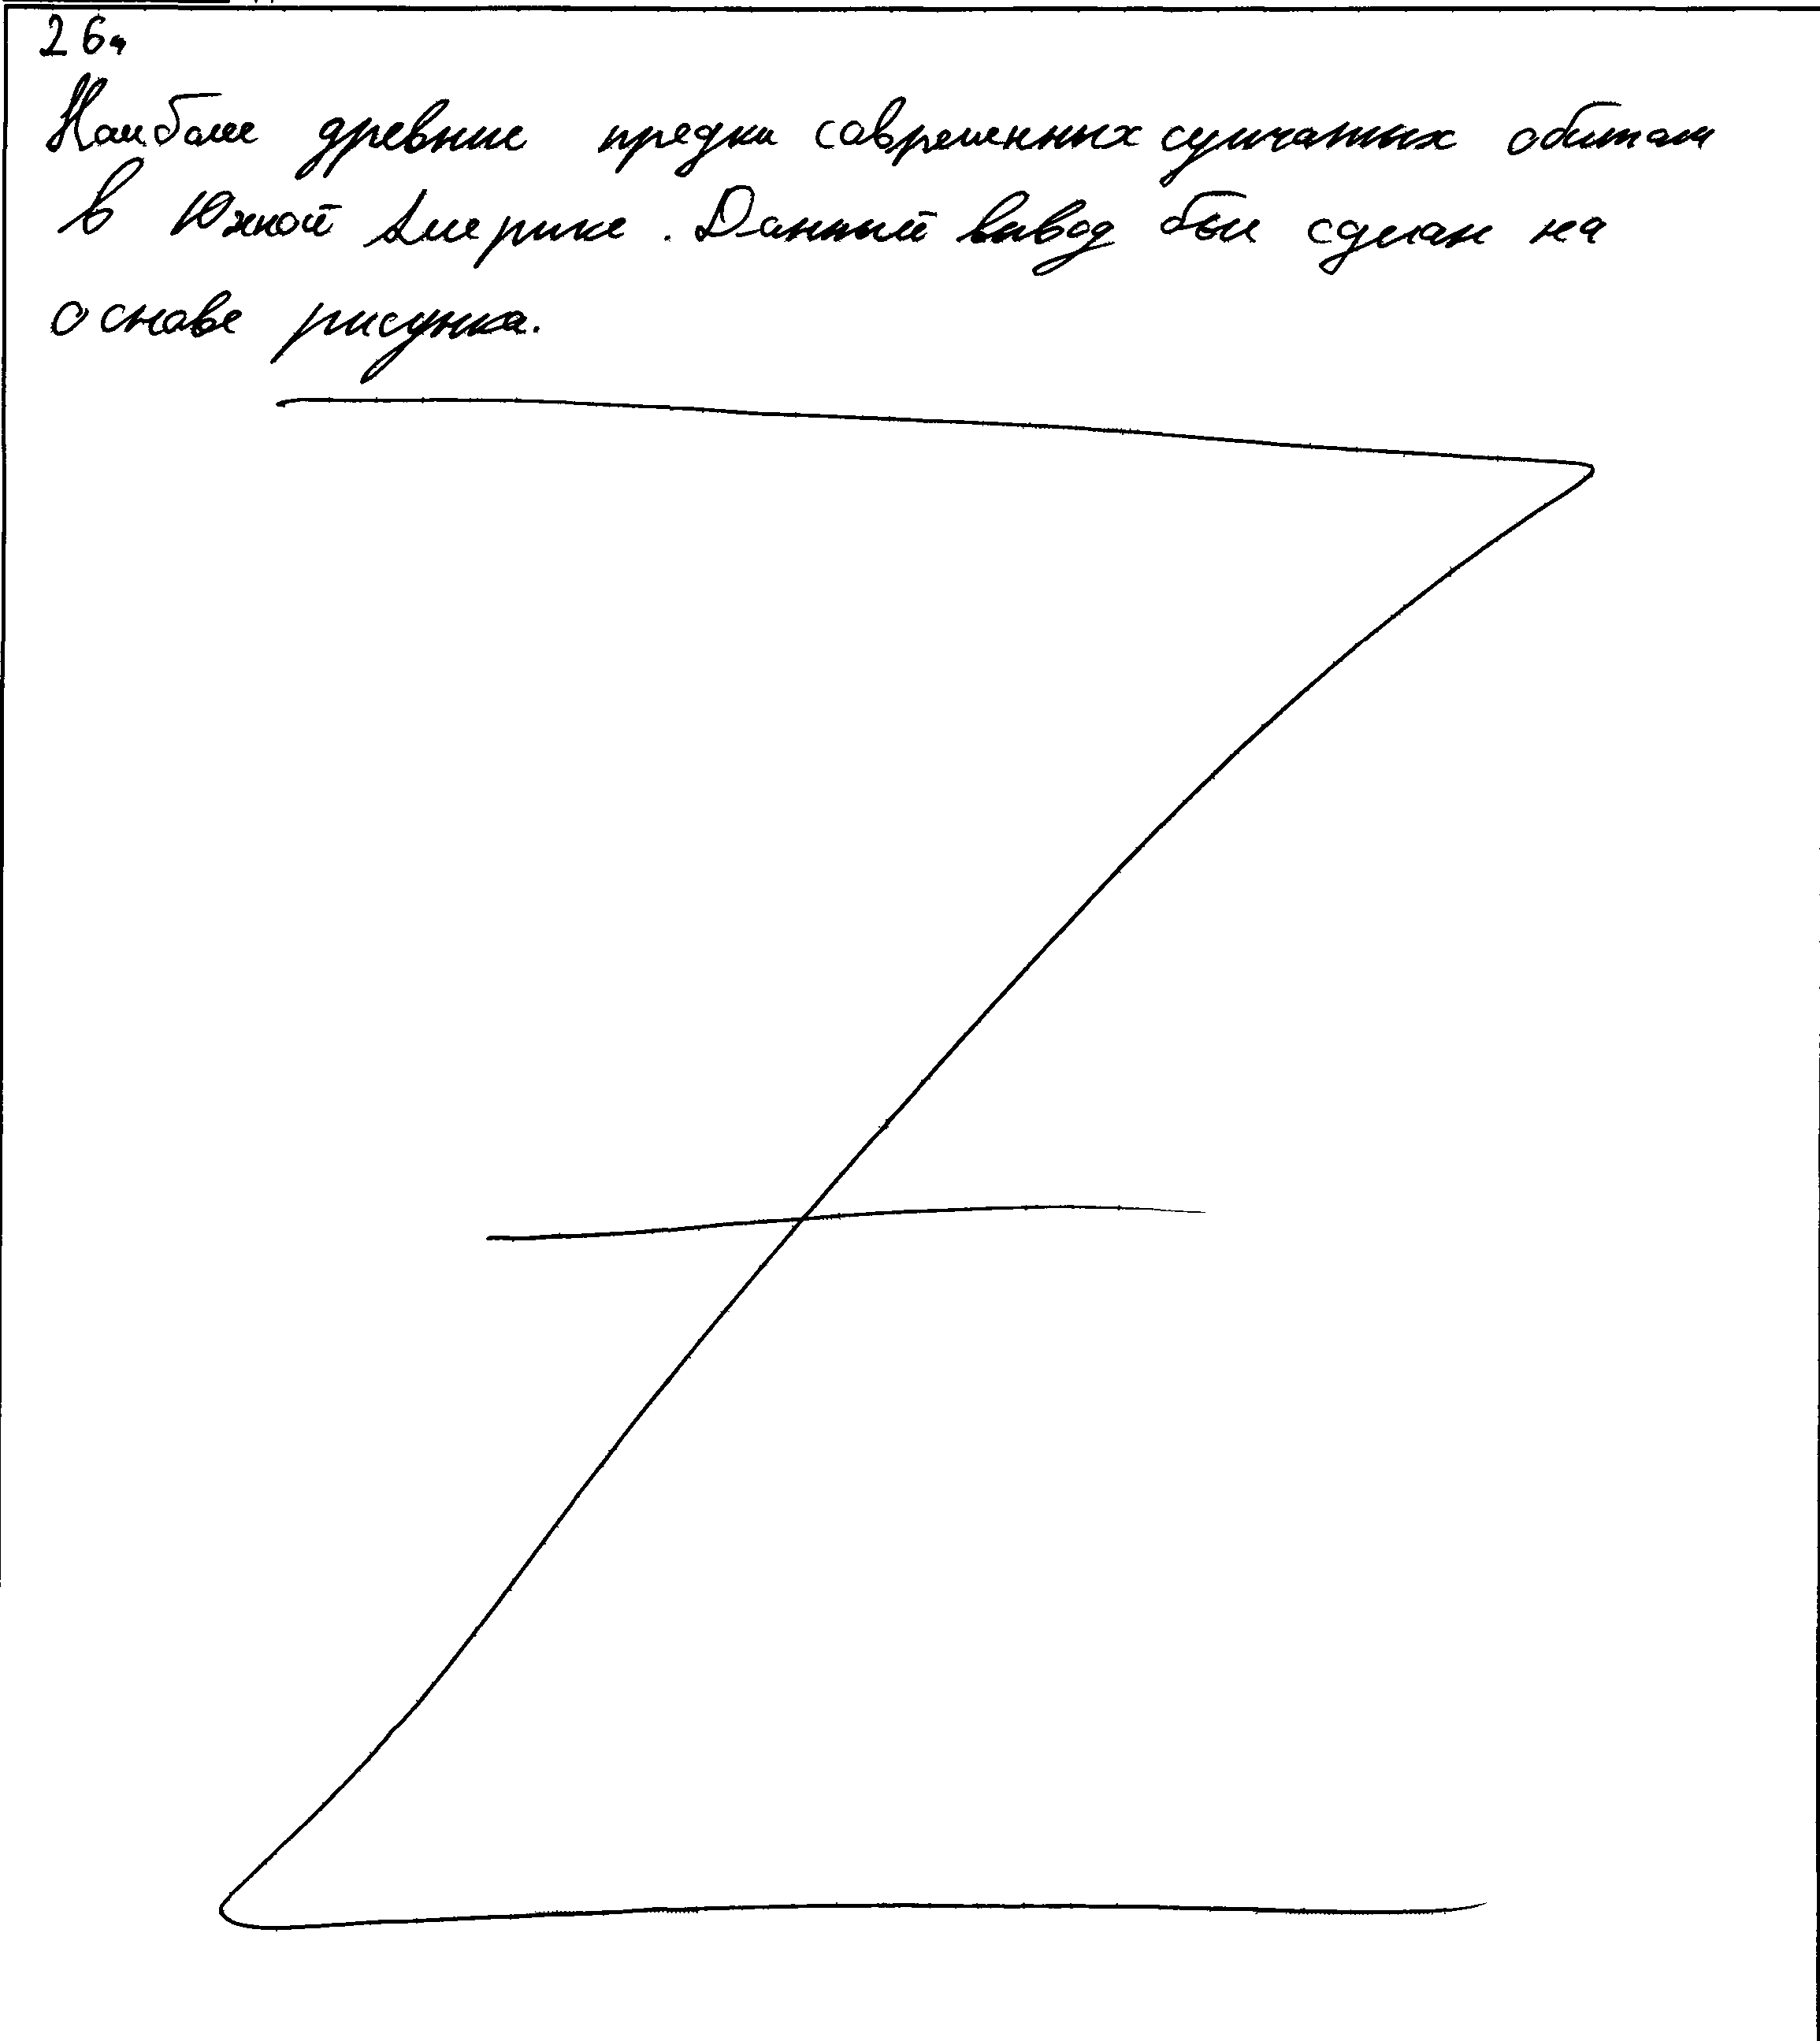 26.
Наиболее древние предки современных сумчатых обитали
в Южной Америке. Данный вывод был сделан на
основе рисунка.